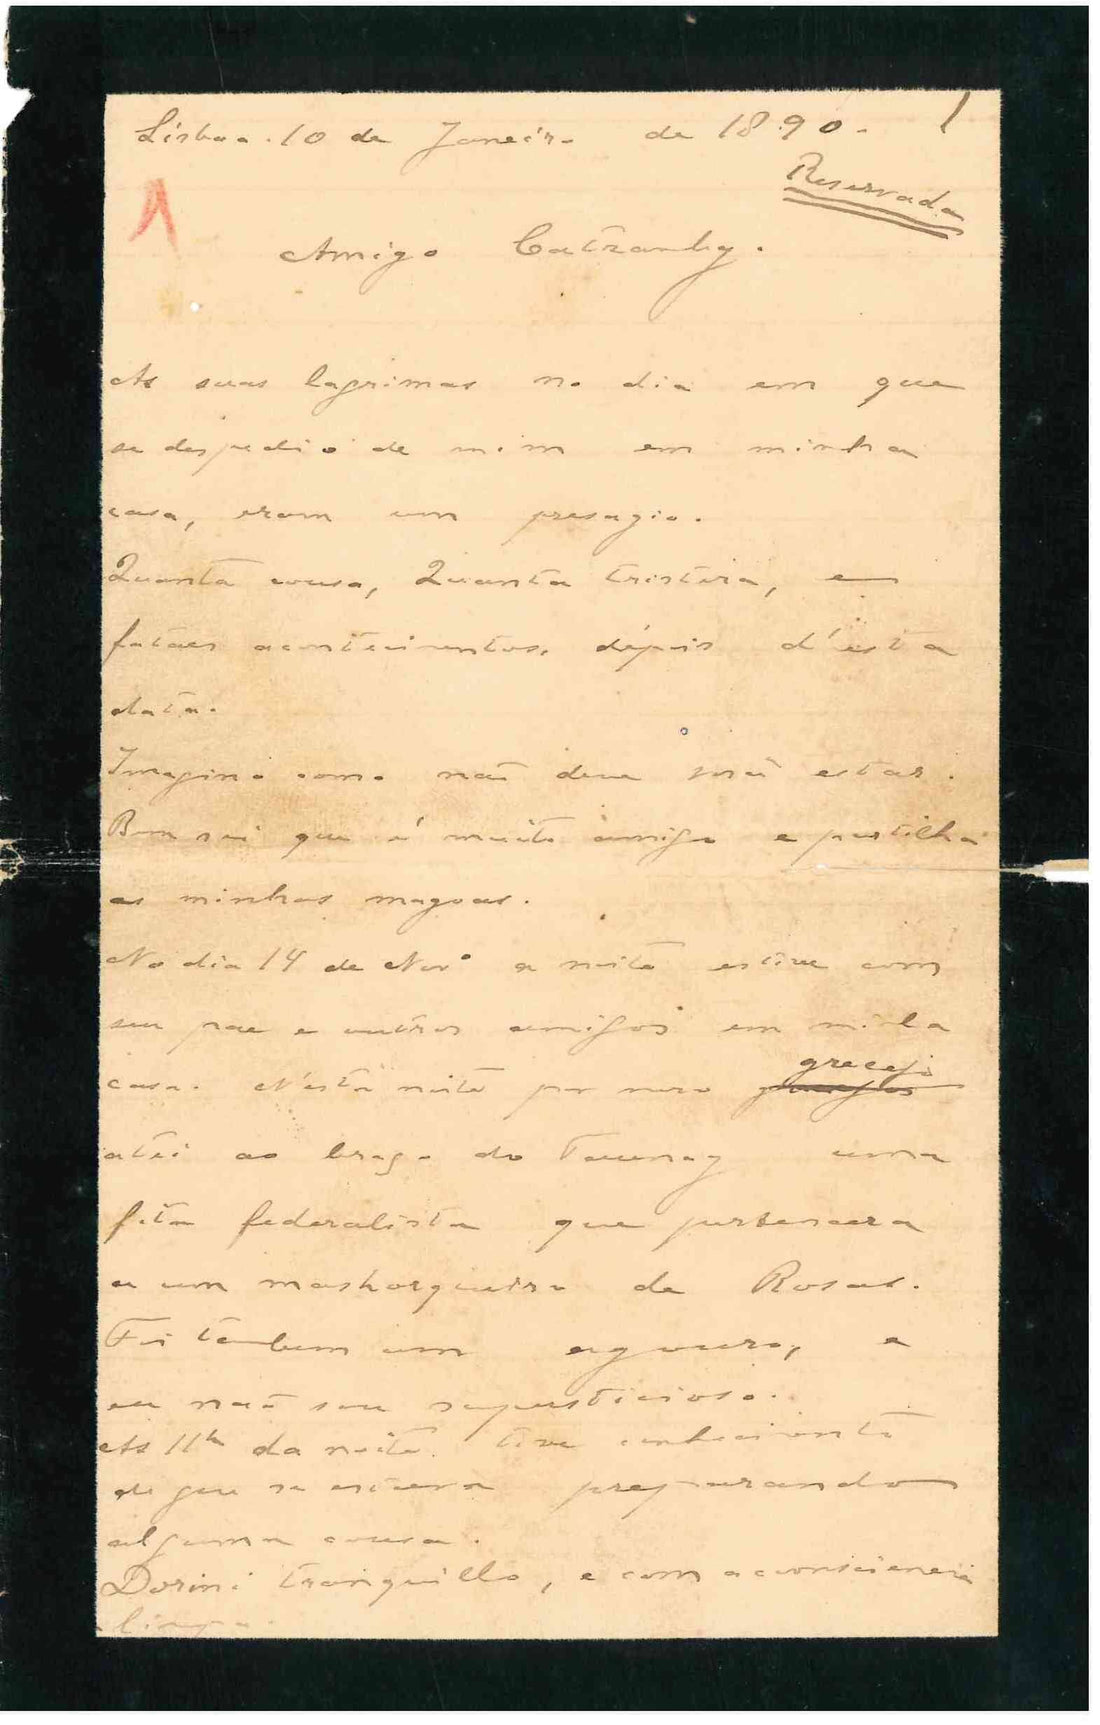 Lisboa. 10 de Janeiro de 1890. 1
Reservada
1
Amigo Catramby.
As suas lagrimas no dia em que
se despedio de mim em minha
casa, eram um presagio.
Quanta cousa, Quanta tristeza, e
fataes acontecimentos, depois d'esta
data.
Imagino como não deve você estar.
Bem sei que é muito amigo e partilha
as minhas magoas.
No dia 14 de Novo a noite estive com
seu pae e outros amigos em minha
casa. N'esta noite por mero gracejo
atei ao braço do Taunay uma
fita federalista que pertencera
a um mashorqueiro de Rosas.
Foi tambem um agouro, e
eu não sou supersticioso.
As 11h da noite. tive conhecimento
de que se estava preparando
alguma cousa.
Dormi tranquillo, e com a consciencia
limpa.